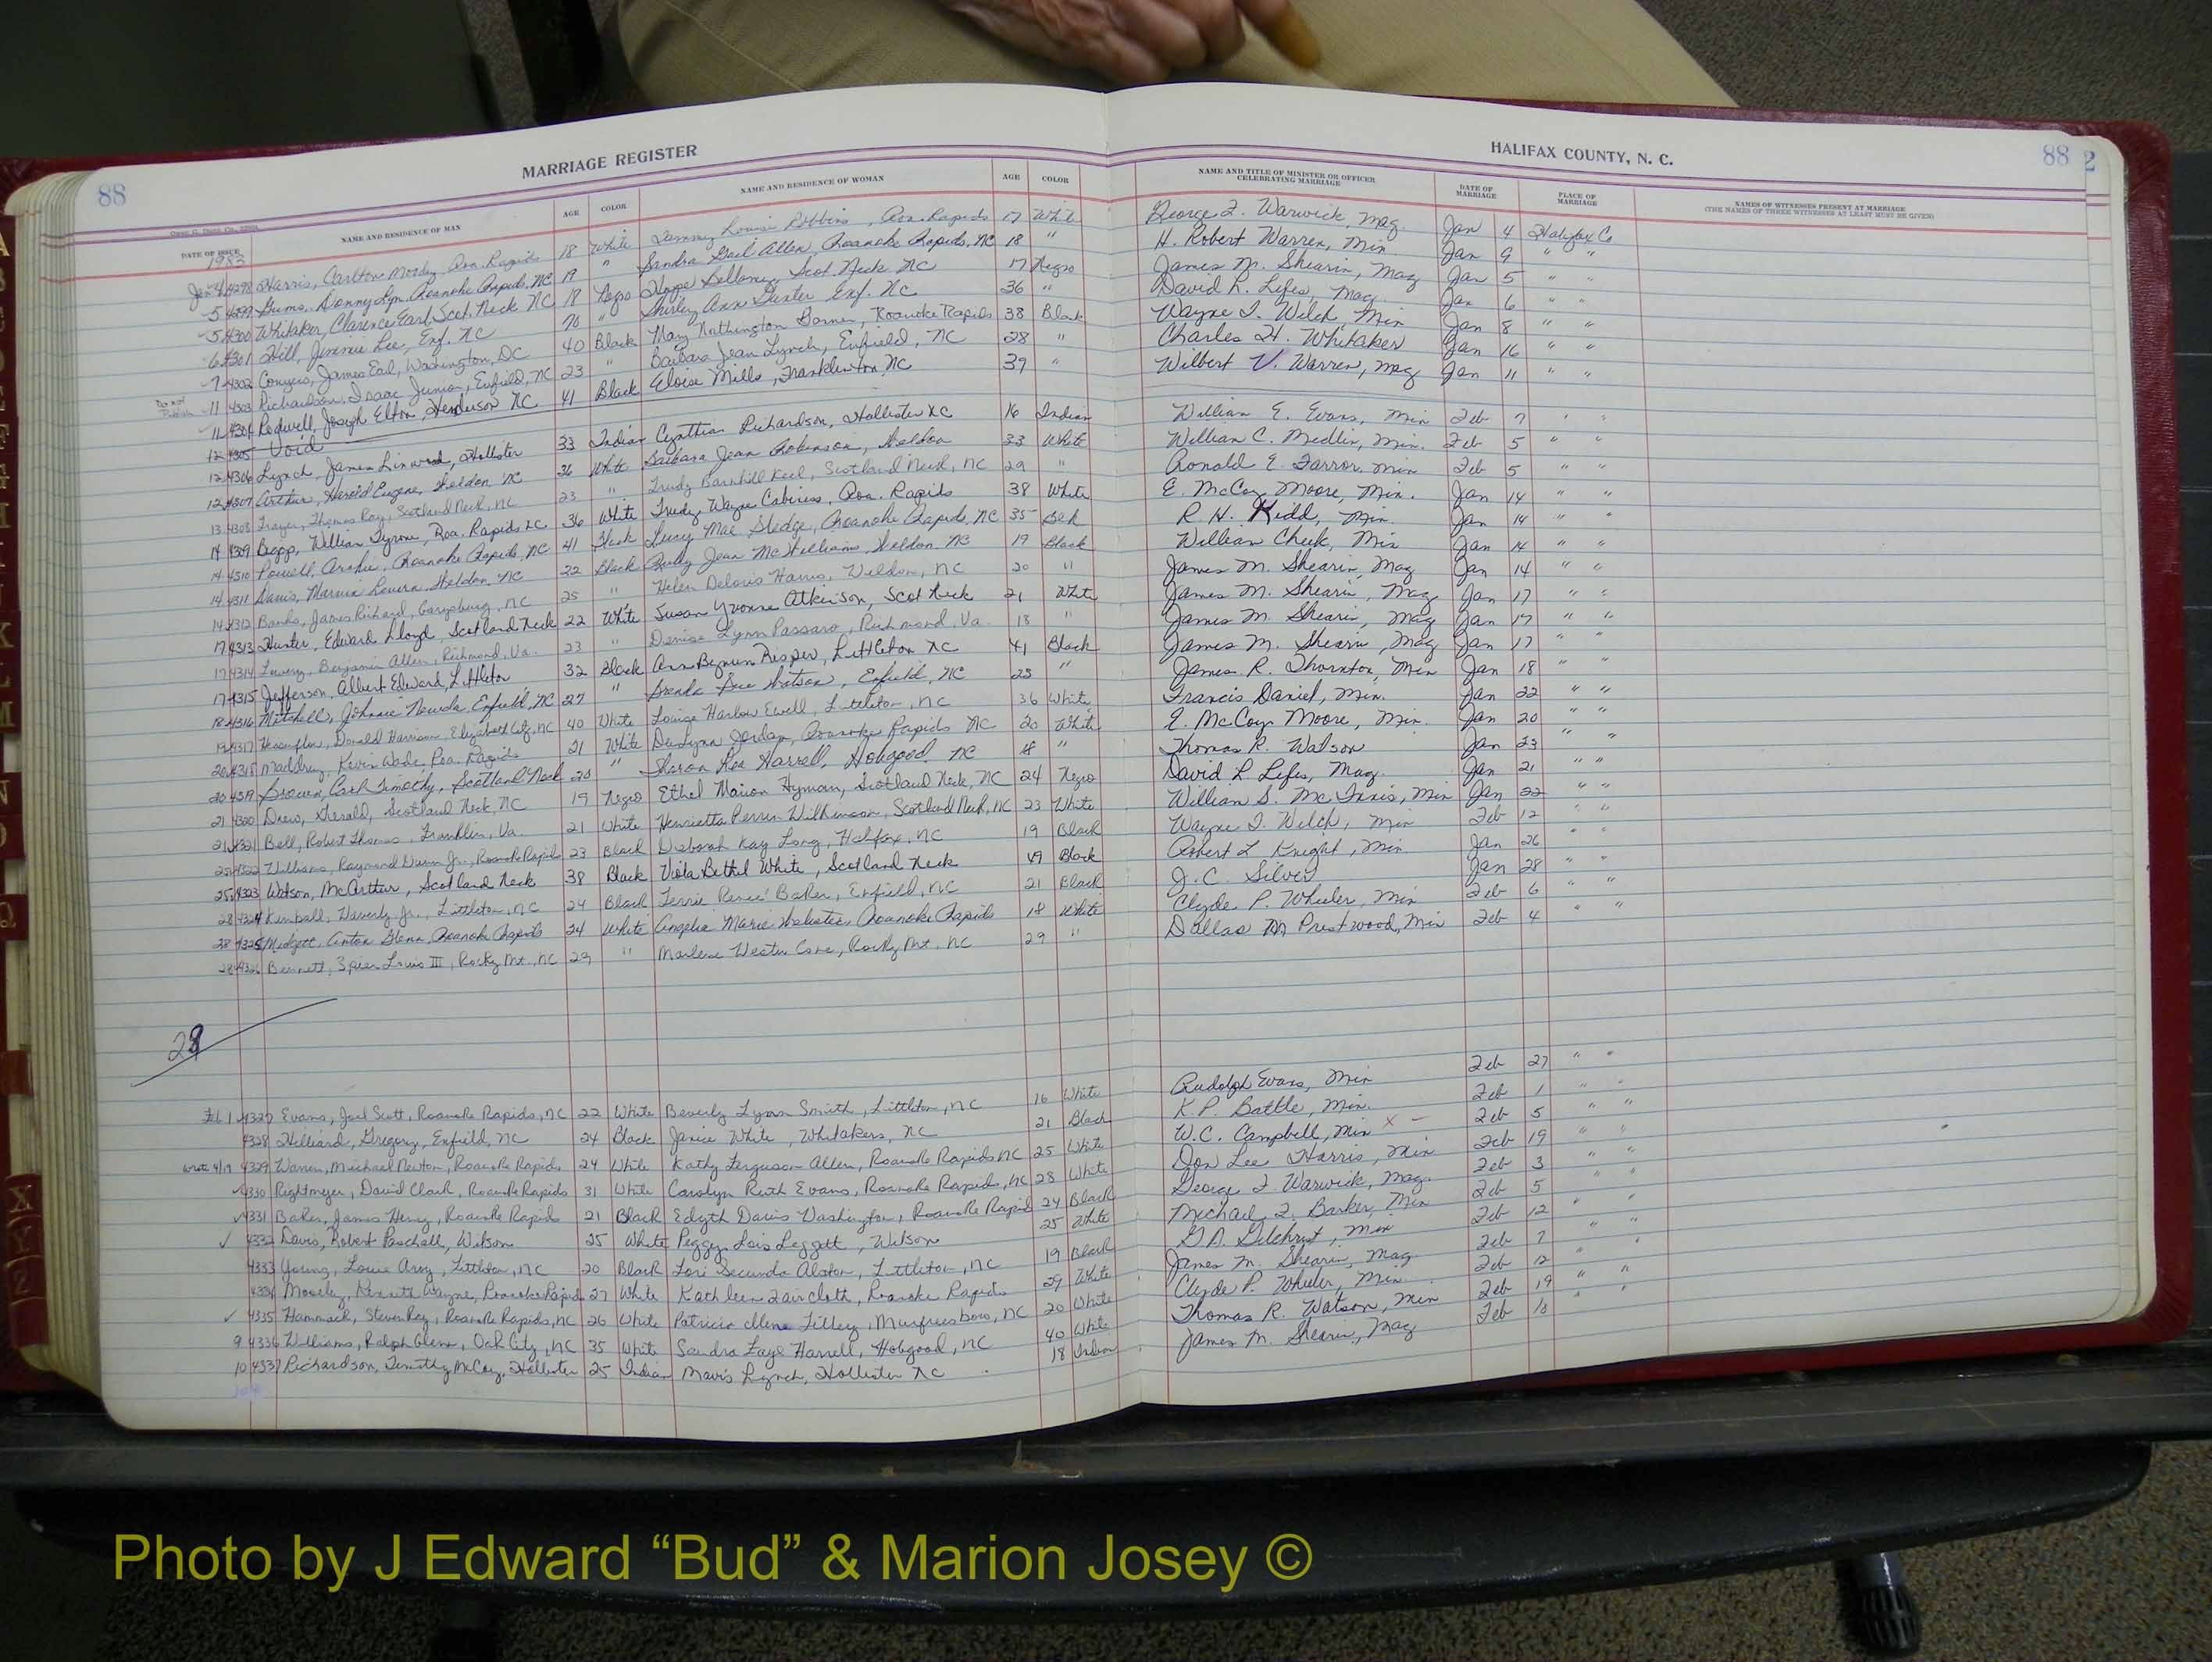 88 MARRIAGE REGISTER HALIFAX COUNTY, N. C. 88 2
DATE OF ISSUE NAME AND RESIDENCE OF MAN AGE COLOR NAME AND RESIDENCE OF WOMAN AGE COLOR NAME AND TITLE OF MINISTER OR OFFICER CELEBRATING MARRIAGE DATE OF MARRIAGE PLACE OF MARRIAGE NAMES OF WITNESSES PRESENT AT MARRIAGE (THE NAMES OF THREE WITNESSES AT LEAST MUST BE GIVEN)
1983
Jan 4 4298 Harris, Carlton Moody Roa. Rapids 18 White Tammy Louise Robbins, Roa. Rapids 17 White George F. Warwick, Mag. Jan 4 Halifax Co
5 4299 Gums, Donny Lyn. Roanoke Rapids, NC 19 " Sandra Gail Allen, Roanoke Rapids, NC 18 " H. Robert Warren, Min Jan 9 " "
5 4300 Whitaker, Clarence Earl, Scot. Neck NC 18 Negro Hope Bellamy Scot. Neck NC 17 Negro James M. Shearin, Mag Jan 5 " "
6 4301 Hill, Jimmie Lee, Enf. NC 70 " Shirley Ann Enf. NC 36 " David L. Liles, Mag. Jan 6 " "
7 4302 Conyers, James Earl, Washington, DC 40 Black Mary Barnes, Roanoke Rapids 38 Black Wayne I. Welch, Min Jan 8 " "
Do not Publish 11 4303 Richardson, Isaac Junior, Enfield, NC 23 " Barbara Jean Lynch, Enfield, NC 28 " Charles H. Whitaker Jan 16 " "
11 4304 Rodwell, Joseph Elton, Henderson NC 41 Black Eloise Mills, Franklinton, NC 39 Wilbert V. Warren, Mag Jan 11 " "
12 4305 Void
12 4306 Lynch, James Linwood, Hollister 33 Indian Cynthia Richardson, Hollister NC 16 Indian William E. Evans, Min Feb 7 " "
12 4307 Arthur, Harold Eugene, Weldon, NC 36 White Barbara Jean Robinson, Weldon 33 White William C. Medlin, Min. Feb 5 " "
13 4308 Thomas Ray, Scotland Neck, NC 23 " Trudy Barnhill Keel, Scotland Neck, NC 29 " Ronald E. Farror, Min Feb 5 " "
14 4309 William Tyrone, Roa. Rapids NC 36 White Trudy Wayne Cabiness, Roa. Rapids 38 White E. McCoy Moore, Min. Jan 14 " "
14 4310 Powell, Archie, Roanoke Rapids, NC 41 Black Lucy Mae Sledge, Roanoke Rapids, NC 35 Black R. H. Kidd, Min. Jan 14 " "
14 4311 Davis, Marvin Weldon, NC 22 Black Jean McWilliams, Weldon, NC 19 Black William Cheek, Min Jan 14 " "
14 4312 Banks, James Richard, Garysburg, NC 25 " Helen Deloris Harris, Weldon, NC 20 " James M. Shearin, Mag Jan 14 " "
17 4313 Hunter, Edward Lloyd, Scotland Neck 22 White Susan Yvonne Atkinson, Scot Neck 21 White James M. Shearin, Mag Jan 17 " "
17 4314 Lowery, Benjamin Allen, Richmond, Va. 23 " Denise Lynn Passaro, Richmond, Va. 18 " James M. Shearin, Mag Jan 17 " "
17 4315 Jefferson, Albert Edward, Littleton 32 Black Ann Bynum Risper, Littleton NC 41 Black James M. Shearin, Mag Jan 17 " "
18 4316 Mitchell, Johnnie Enfield, NC 27 " Brenda Watson, Enfield, NC 25 " James R. Thornton, Min Jan 18 " "
19 4317 Donald Harrison, Elizabeth City, NC 40 White Louise Harlow Ewell, Littleton, NC 36 White Francis Daniel, Min. Jan 22 " "
20 4318 Maddrey, Kevin Wade, Roa. Rapids 21 White Jordan, Roanoke Rapids NC 20 White E. McCoy Moore, Min. Jan 20 " "
20 4319 Brown, Carl Timothy, Scotland Neck 20 " Sharon Rea Harrell, Hobgood, NC 18 " Thomas R. Watson Jan 23 " "
21 4320 Drew, Gerald, Scotland Neck, NC 19 Negro Ethel Marion Hyman, Scotland Neck, NC 24 Negro David L. Liles, Mag. Jan 21 " "
21 4321 Bell, Robert Thomas, Franklin, Va. 21 White Henrietta Perrin Wilkinson, Scotland Neck, NC 23 White William S. McInnis, Min Jan 22 " "
25 4322 Williams, Raymond Jr., Roanoke Rapids 23 Black Deborah Kay Long, Halifax, NC 19 Black Wayne I. Welch, Min Feb 12 " "
25 4323 Watson, McArthur, Scotland Neck 38 Black Viola Bethel White, Scotland Neck 49 Black Robert L. Knight, Min Jan 26 " "
28 4324 Kimball, Waverly Jr., Littleton, NC 24 Black Terrie Reneé Baker, Enfield, NC 21 Black J. C. Silver Jan 28 " "
28 4325 Midgett, Anton Glenn, Roanoke Rapids 24 White Angelia Marie Webster, Roanoke Rapids 18 White Clyde P. Wheeler, Min Feb 6 " "
28 4326 Bennett, Spier Louis III, Rocky Mt., NC 29 " Marlene Wester Cone, Rocky Mt. NC 29 " Dallas M Prestwood, Min Feb 4 " "
28
Feb 1 4327 Evans, Joel Scott, Roanoke Rapids, NC 22 White Beverly Lynn Smith, Littleton, NC 16 White Rudolph Evans, Min Feb 27 " "
4328 Hilliard, Gregory, Enfield, NC 24 Black Janice White, Whitakers, NC 21 Black K. P. Battle, Min. Feb 1 " "
wrote 4/19 4329 Warren, Michael Newton, Roanoke Rapids 24 White Kathy Ferguson Allen, Roanoke Rapids NC 25 White W. C. Campbell, Min x - Feb 5 " "
✓ 4330 Rightmyer, David Clark, Roanoke Rapids 31 White Carolyn Ruth Evans, Roanoke Rapids, NC 28 White Don Lee Harris, Min Feb 19 " "
✓ 4331 Baker, James Henry, Roanoke Rapids 21 Black Edyth Davis Washington, Roanoke Rapids 24 Black George F. Warwick, Mag. Feb 3 " "
✓ 4332 Davis, Robert Paschall, Wilson 25 White Peggy Lois Leggett, Wilson 25 White Michael F. Barker, Min Feb 5 " "
4333 Young, Louie Littleton, NC 20 Black Lori Secunda Alston, Littleton, NC 19 Black Gilchrist, Min Feb 12 " "
4334 Moseley, Kenneth Wayne, Roanoke Rapids 27 White Kathleen Faircloth, Roanoke Rapids 29 White James M. Shearin, Mag Feb 7 " "
✓ 4335 Hammack, Steven Ray, Roanoke Rapids, NC 26 White Patricia Tillery, Murfreesboro, NC 20 White Clyde P. Wheeler, Min. Feb 12 " "
9 4336 Williams, Ralph Glenn, Oak City, NC 35 White Sandra Faye Harrell, Hobgood, NC 40 White Thomas R. Watson, Min Feb 19 " "
10 4337 Richardson, Timothy McCoy, Hollister 25 Indian Mavis Lynch, Hollister NC 18 Indian James M. Shearin, Mag Feb 10
Photo by J Edward “Bud” & Marion Josey ©